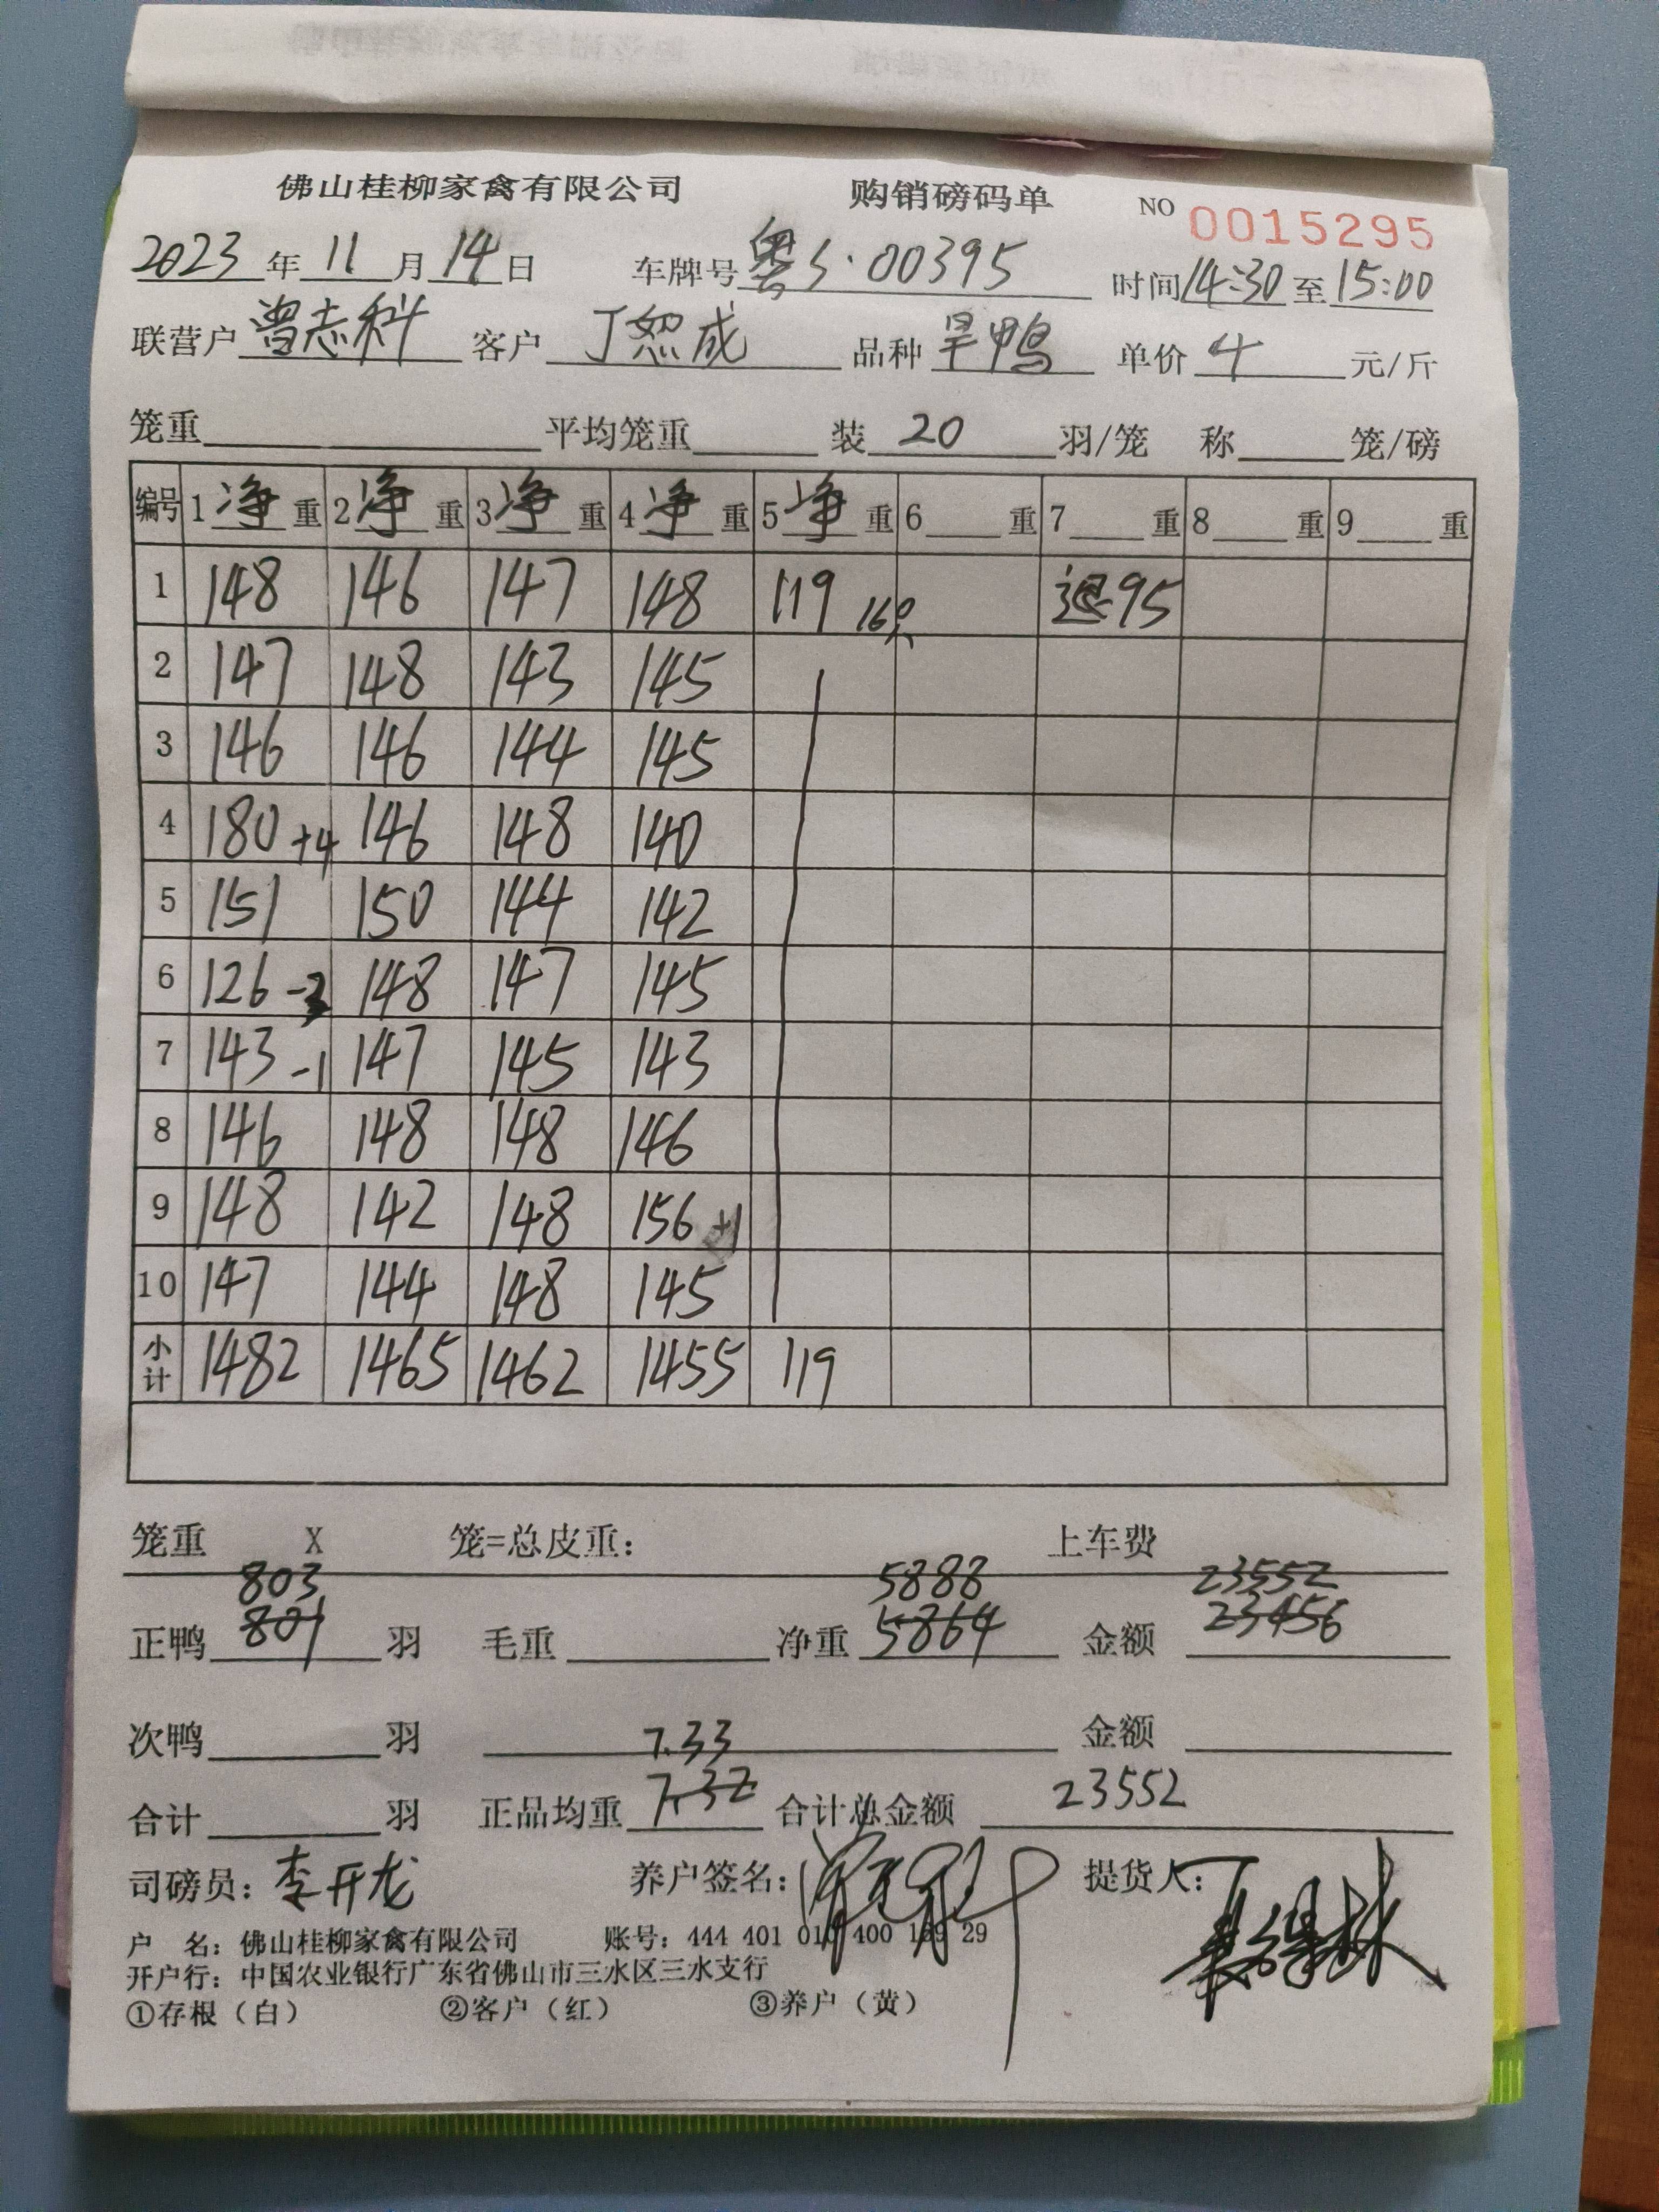 佛山桂柳家禽有限公司 购销磅码单 NO 0015295
2023年11月14日 车牌号粤S·00395 时间14:30至15:00
联营户曾志科 客户丁恕成 品种旱鸭 单价4元/斤
笼重 平均笼重 装20羽/笼 称 笼/磅
编号 1净重 2净重 3净重 4净重 5净重 6重 7重 8重 9重
1 148 146 147 148 119 16只 退95
2 147 148 143 145
3 146 146 144 145
4 180+4 146 148 140
5 151 150 144 142
6 126-3 148 147 145
7 143-1 147 145 143
8 146 148 148 146
9 148 142 148 156+1
10 147 144 148 145
小计 1482 1465 1462 1455 119
笼重 X 笼=总皮重: 上车费
803 5888 23552
正鸭801羽 毛重 净重5864 金额23456
次鸭 羽 7.33 金额
合计 羽 正品均重7.32 合计总金额23552
司磅员:李开龙 养户签名: 提货人:
户 名:佛山桂柳家禽有限公司 账号:444 401 010 400 159 29
开户行:中国农业银行广东省佛山市三水区三水支行
①存根(白) ②客户(红) ③养户(黄)